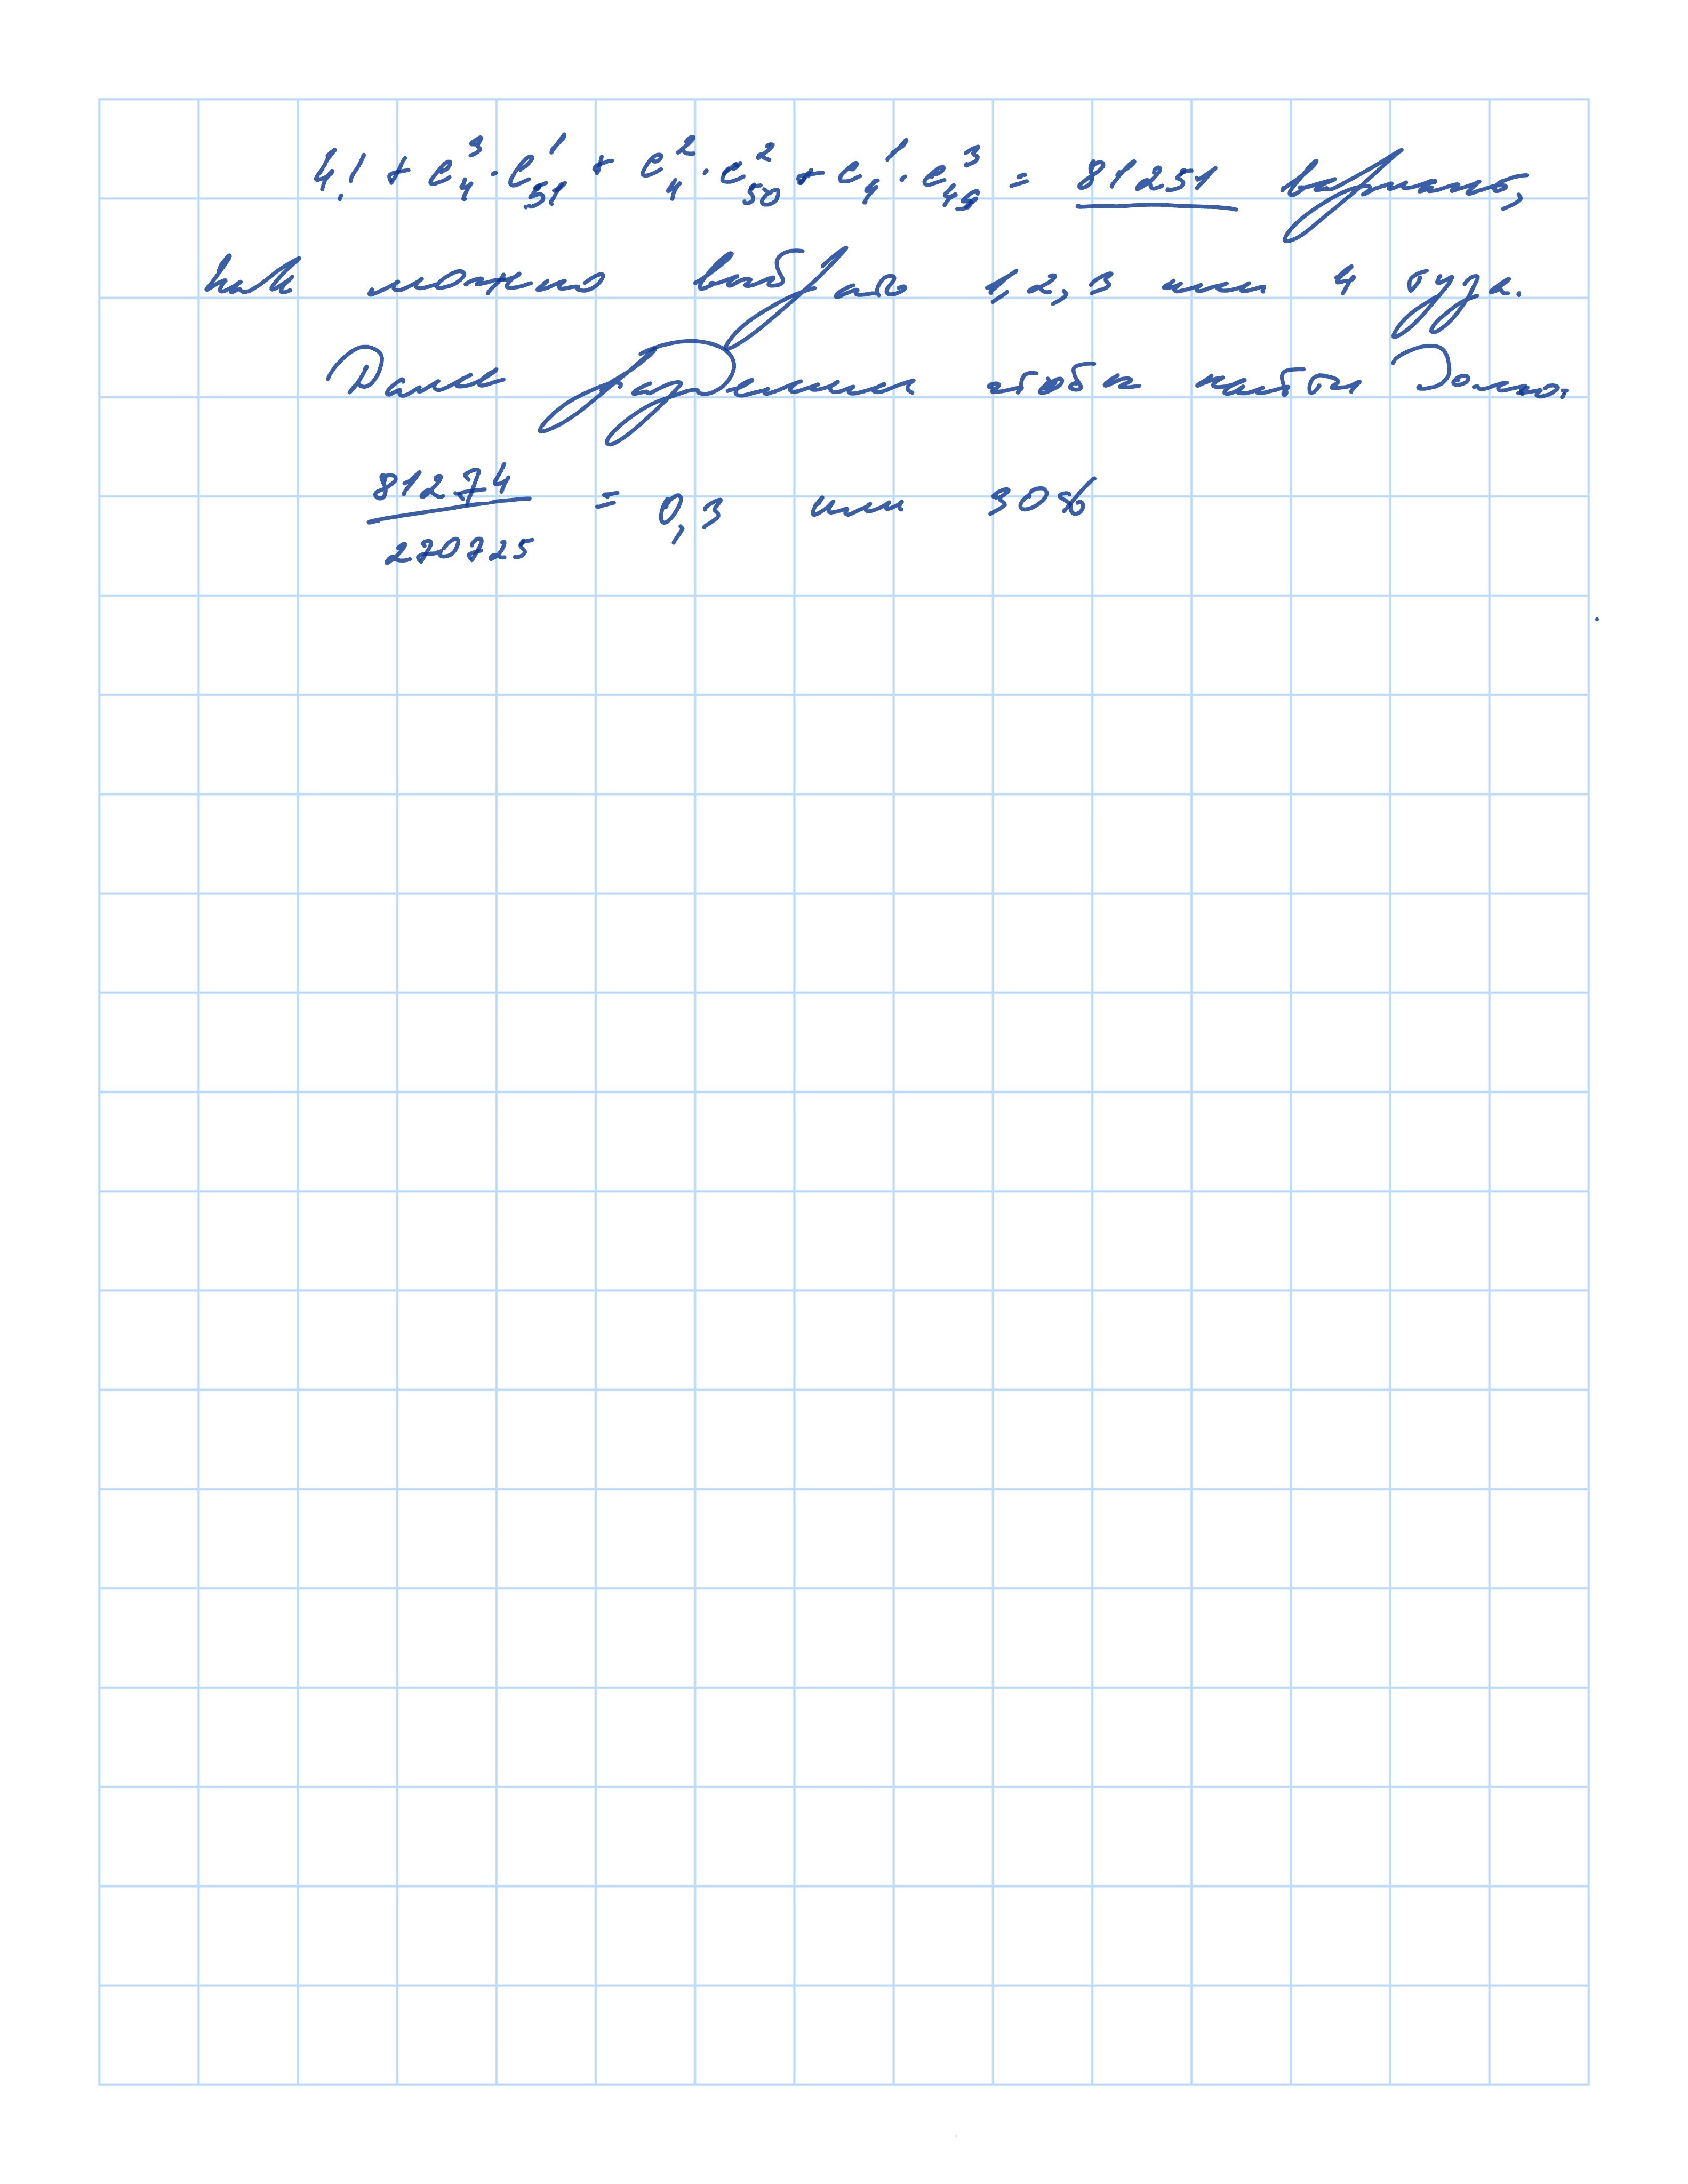 4! + C₄³·C₅₁¹ + C₄²·C₅₀² + C₄¹·C₄₉³ = 81251 вариант,
как можно выбрать 1, 2, 3 или 4 туза.
Далее разделим чтобы найти долю.
81274 / 270725 = 0,3 или 30%